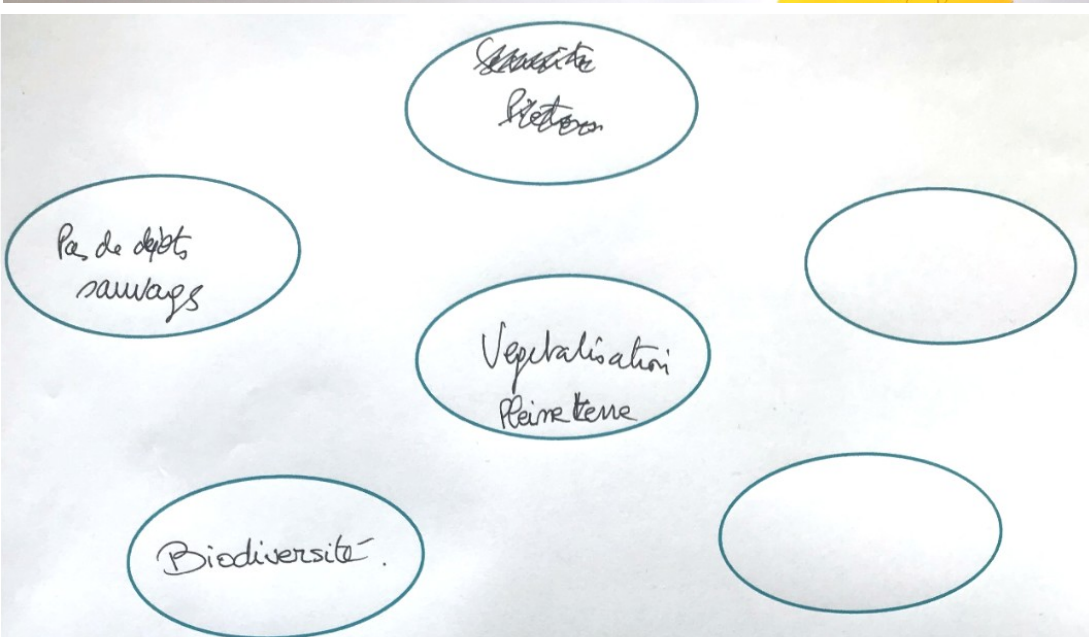 Pas de dépots
sauvages
Vegetalisation
Pleine terre
Biodiversité.